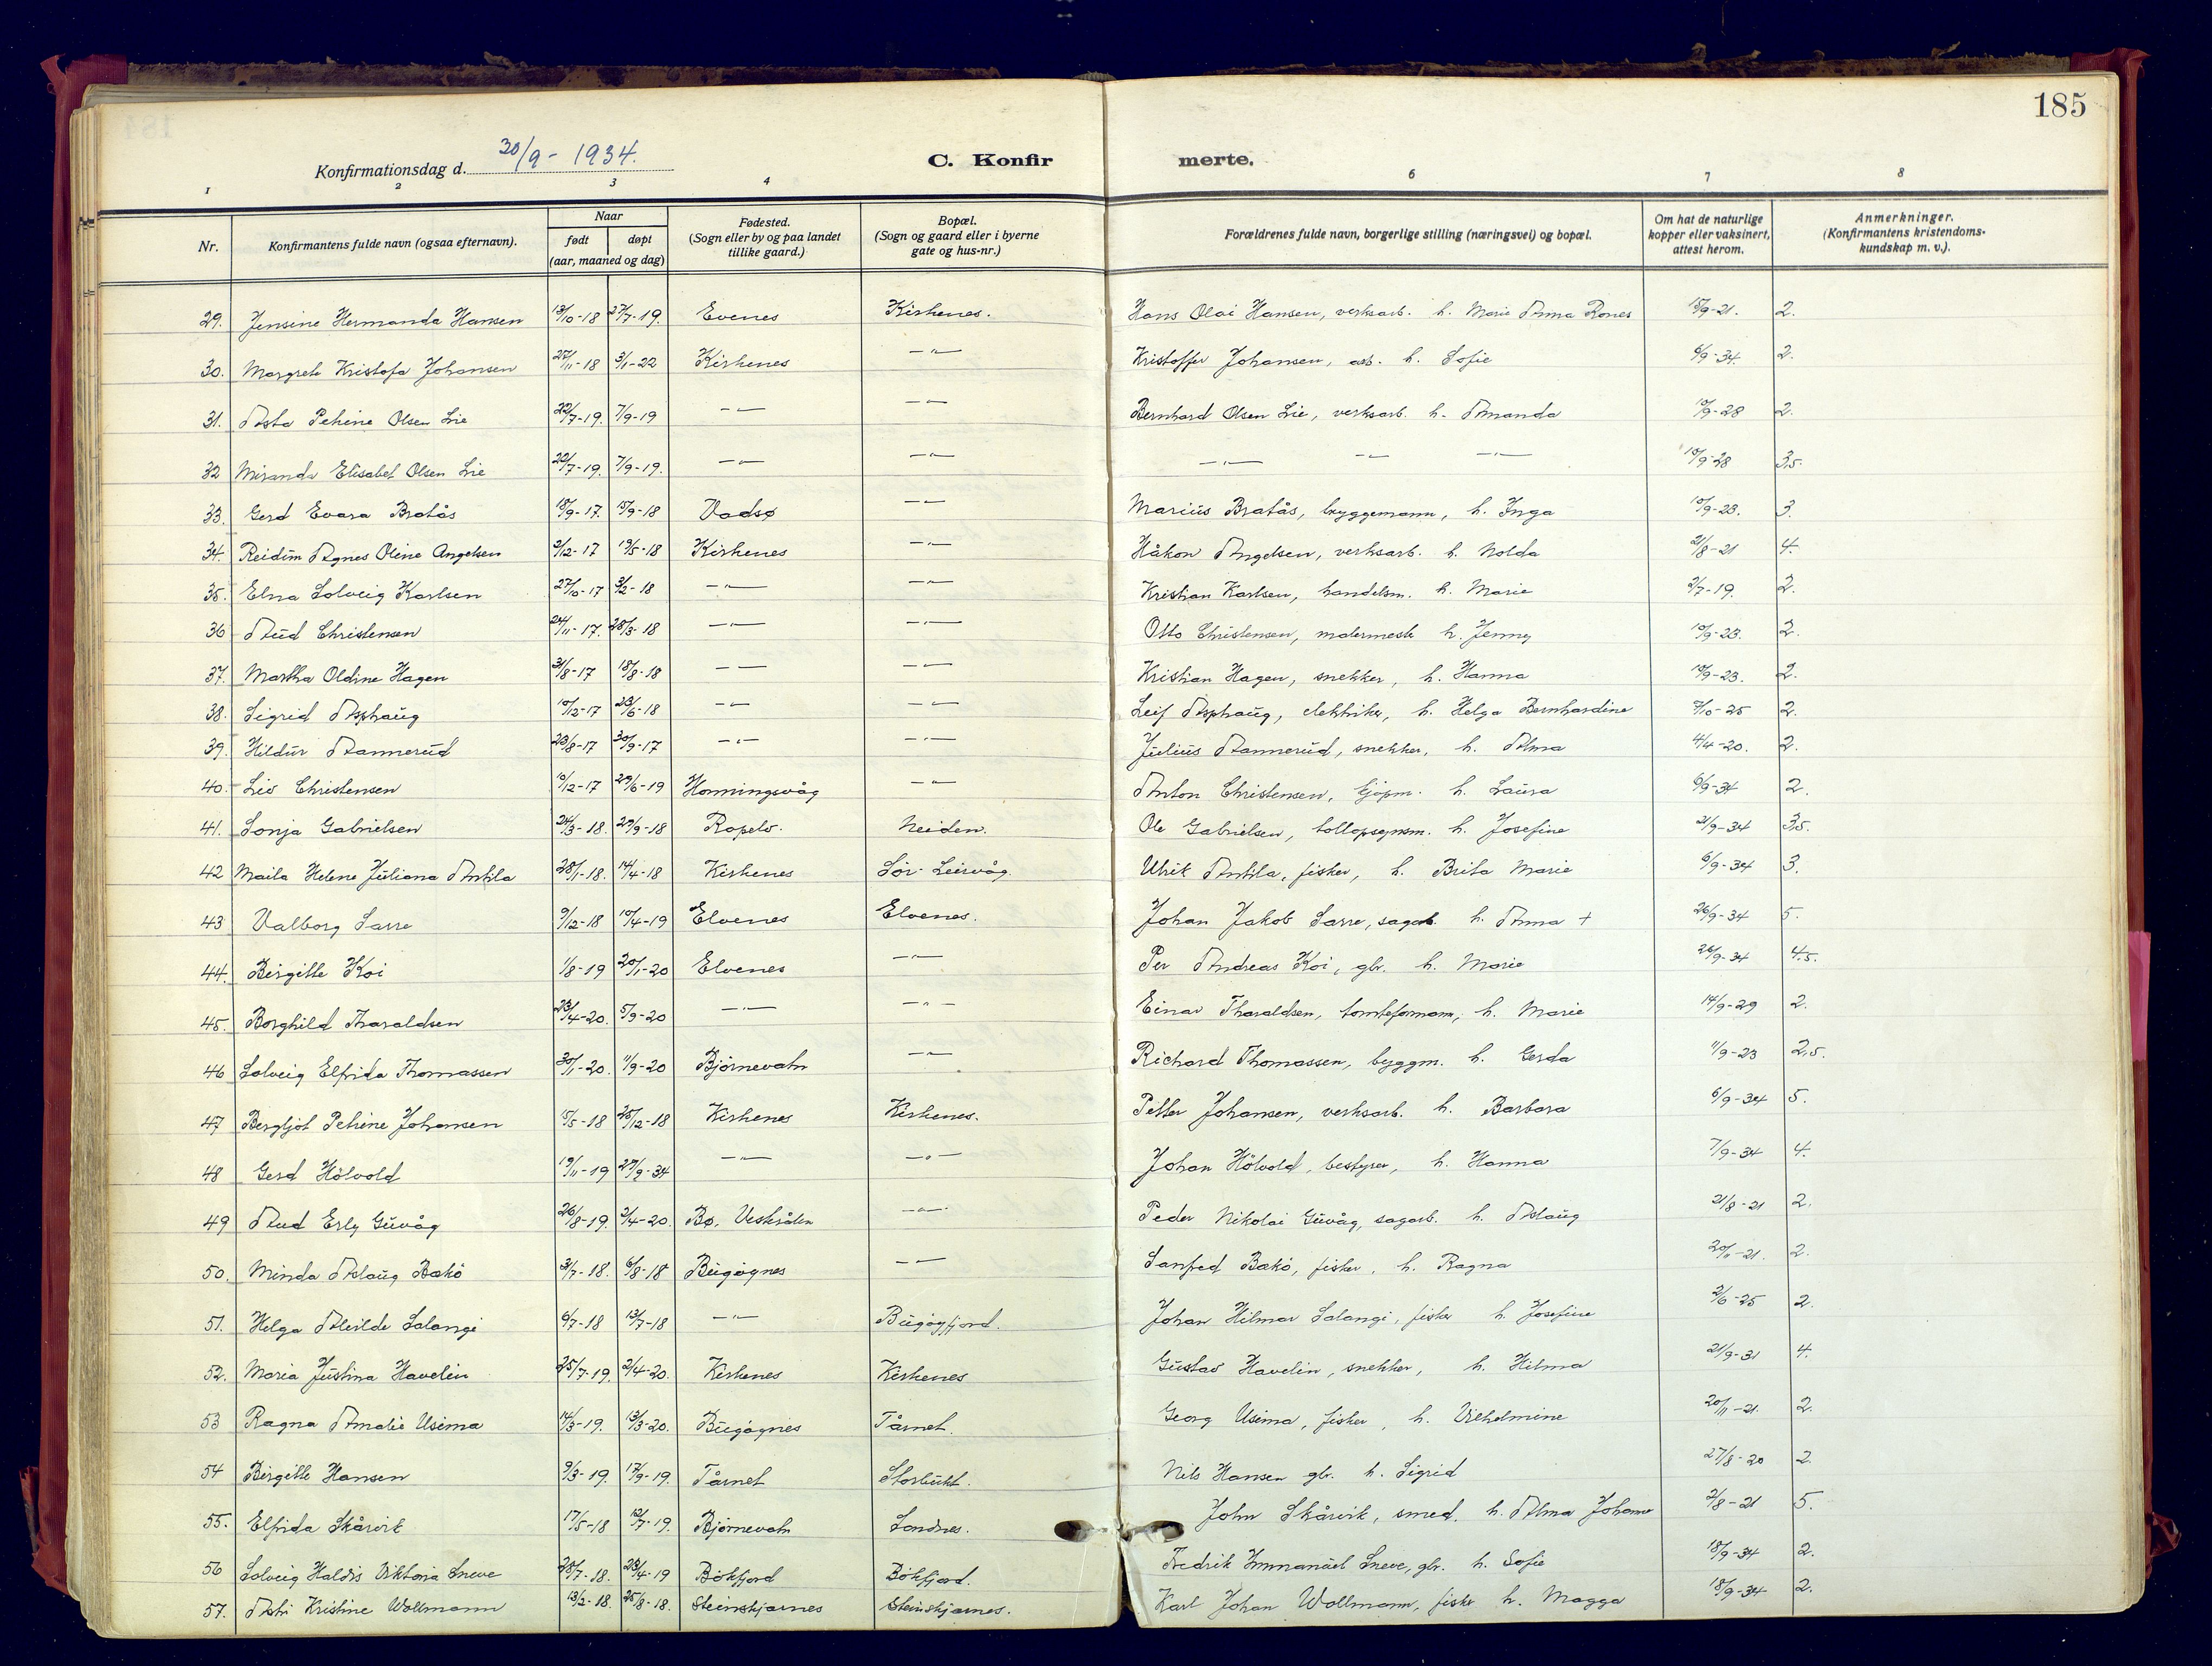 185
Konfirmationsdag d. 30/9 - 1934.
C. Konfir merte.
1 2 3 4 6 7 8
Nr. Konfirmantens fulde navn (ogsaa efternavn). Naar født døpt (aar, maaned og dag) Fødested. (Sogn eller by og paa landet tillike gaard.) Bopæl. (Sogn og gaard eller i byerne gate og hus-nr.) Forældrenes fulde navn, borgerlige stilling (næringsvei) og bopæl. Om hat de naturlige kopper eller vaksinert, attest herom. Anmerkninger. (Konfirmantens kristendoms-kundskap m. v.).
29. Jensine Hermanda Hansen 13/10-18 27/7-19. Evenes Kirkenes. Hans Olai Hansen, verksarb. h. Marie Anna Rones 15/9-21. 2.
30. Margrete Kristofa Johansen 27/11-18 3/1-22 Kirkenes —"— Kristoffer Johansen, arb. h. Sofie 6/9-34. 2.
31. Asta Petrine Olsen Lie 22/7-19. 7/9-19 —"— —"— Bernhard Olsen Lie, verksarb. h. Amanda 10/9-28 2.
32 Miranda Elisabet Olsen Lie 22/7-19. 7/9-19. —"— —"— —"— —"— —"— 10/9-28 3,5.
33. Gerd Evara Bratås 18/9-17. 15/9-18 Vadsø —"— Marius Bratås, bryggemann, h. Inga 10/9-23. 3.
34. Reidun Agnes Oline Angelsen 2/12-17 19/5-18 Kirkenes —"— Håkon Angelsen, verksarb. h. Nolda 21/8-21 4.
35. Elna Solveig Karlsen 27/10-17 3/2-18 —"— —"— Kristian Karlsen, handelsm. h. Marie 2/7-19. 2.
36 Aud Christensen 24/11-17. 28/3-18 —"— —"— Otto Christensen, malermest. h. Jenny 10/9-23. 2.
37. Martha Oldine Hagen 31/8-17 18/8-18 —"— —"— Kristian Hagen, snekker, h. Hanna 10/9-23. 2.
38. Sigrid Asphaug 10/12-17 23/6-18 —"— —"— Leif Asphaug, elektriker, h. Helga Bernhardine 7/10-25 2.
39. Hildur Aannerud 23/8-17 30/9-17 —"— —"— Julius Aannerud, snekker, h. Alma 4/4-20. 2.
40. Liv Christensen 10/12-17 29/6-19 Honningsvåg —"— Anton Christensen, kjøpm. h. Laura 6/9-34 2.
41. Sonja Gabrielsen 24/3-18. 29/9-18 Ropelv. Neiden. Ole Gabrielsen, tollopsynsm. h. Josefine 21/9-34 3,5.
42 Maila Helene Juliana Antila 28/1-18. 14/4-18 Kirkenes Sör-Leirvåg. Ulrik Antila, fisker, h. Brita Marie 6/9-34 3.
43 Valborg Sarre 9/12-18 10/4-19 Elvenes Elvenes. Johan Jakob Sarre, sagarb. h. Anna + 26/9-34 5.
44. Birgitte Koi 1/8-19 20/1-20 Elvenes —"— Per Andreas Koi, gbr. h. Marie 26/9-34 4.5.
45. Borghild Tharaldsen 23/4-20. 5/9-20 —"— —"— Einar Tharaldsen, tomteformann, h. Marie 14/9-29 2.
46 Solveig Elfrida Thomassen 30/1-20. 11/9-20 Björnevatn —"— Richard Thomassen, byggm. h. Gerda 11/9-23 2,5.
47 Bergljot Petrine Johansen 15/5-18 25/12-18 Kirkenes Kirkenes. Petter Johansen, verksarb. h. Barbara 6/9-34 5.
48 Gerd Hölvold 19/11-19 29/9-34 —"— —"— Johan Hölvold, bestyrer, h. Hanna 7/9-34 4.
49 Aud Erly Guvåg 26/8-19. 2/4-20. Bø, Vesterålen —"— Peder Nikolai Guvåg, sagarb. h. Aslaug 21/8-21 2.
50. Minda Aslaug Bakö 31/7-18. 6/8-18 Bugöynes —"— Sanfred Bakö, fisker, h. Ragna 20/11-21. 2.
51. Helga Alvilde Salangi 6/7-18 13/7-18 —"— Bugöyfjord. Johan Hilmar Salangi, fisker h. Josefine 2/6-25 2.
52. Maria Justina Havelin 25/7-19. 2/4-20. Kirkenes Kirkenes Gustav Havelin, snekker, h. Hilma 21/9-31 4.
53 Ragna Amalie Usima 14/3-19. 13/3-20. Bugöynes Tårnet. Georg Usima, fisker, h. Vilhelmine 20/11-21. 2.
54 Birgitte Hansen 9/3-19. 17/9-19. Tårnet Storbukt. Nils Hansen gbr. h. Sigrid 27/8-20 2.
55. Elfrida Skårvik 17/5-18 12/7-19. Björnevatn Sandnes. John Skårvik, smed. h. Alma Johanne 2/8-21 5.
56 Solveig Haldis Viktoria Sneve 28/7-18. 23/4-19 Bökfjord Bökfjord. Fredrik Immanuel Sneve, gbr. h. Sofie 18/9-34 2.
57. Astri Kristine Wollmann 13/2-18. 25/8-18. Steinskjærnes Steinskjærnes. Karl Johan Wollmann, fisker h. Magga 18/9-34 2.